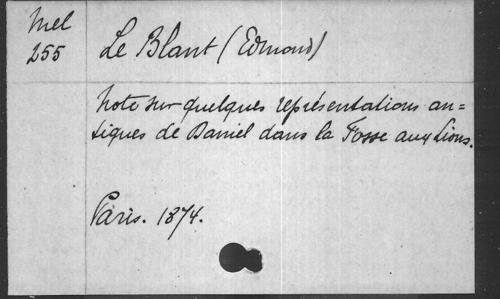 Mel
255
Le Blant (Edmond)
Note sur quelques représentations an=
tiques de Daniel dans la Fosse aux Lions.
Paris. 1874.